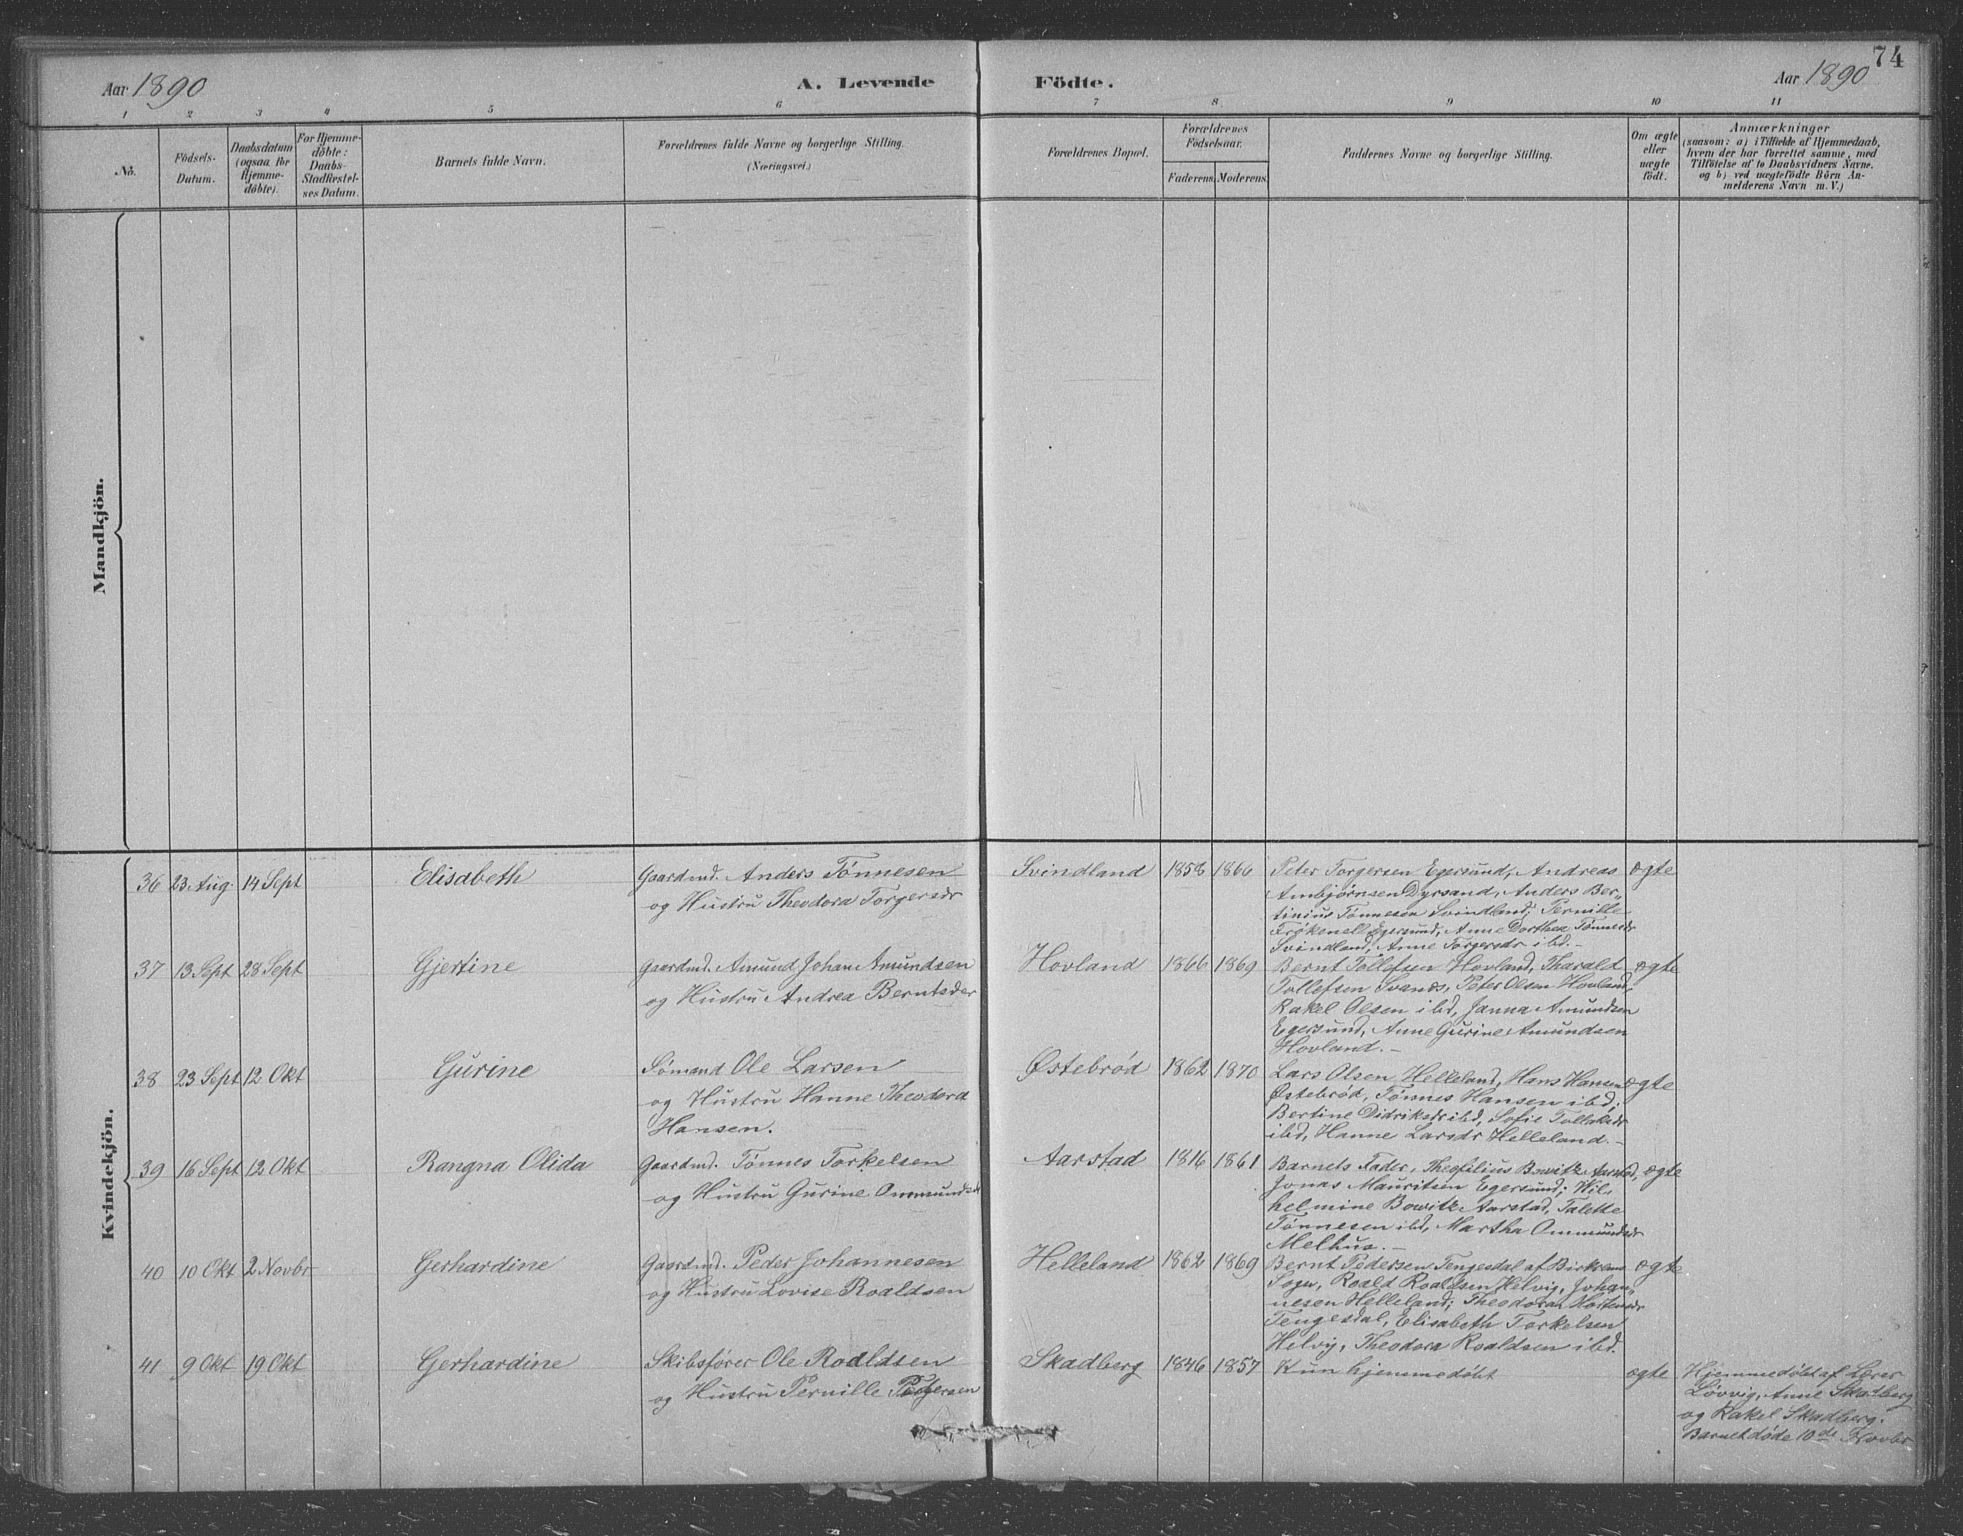 74
Aar 1890
A. Levende
Födte.
Aar 1890
1 2 3 4 5 6 7 8 9 10 11
No.
Födsels-
Datum.
Daabsdatum
(ogsaa for
Hjemme-
döbte).
For Hjemme-
döbte:
Daabs-
Stadfæstel-
ses Datum.
Barnets fulde Navn.
Forældrenes fulde Navne og borgerlige Stilling.
(Næringsvei.)
Forældrenes Bopæl.
Forældrenes
Födselsaar.
Faderens. Moderens.
Faddernes Navne og borgerlige Stilling.
Om ægte
eller
uægte
födt.
Anmærkninger
(saasom: a) i Tilfælde af Hjemmedaab,
hvem der har forrettet samme, med
Tilföielse af to Daabsvidners Navne.
og b) ved uægtefödte Börn An-
melderens Navn m. V.)
Mandkjön.
Kvindekjön.
36 23 Aug. 14 Sept Elisabeth
Gaardmd. Anders Tønnesen
og Hustru Theodora Torgersdr
Svindland 1858 1866
Peter Torgersen Egersund, Andreas
Ambjørnsen Dyrsand, Anders Ber-
tinius Tønnesen Svindland; Pernille
Egersund, Anne Dorthea Tønnesdr
Svindland, Anne Torgersdr ibd.-
ægte
37 13 Sept 28 Sept Gjertine
Gaardmd. Amund Johan Amundsen
og Hustru Andrea Berntsdr
Hovland 1866 1869
Bernt Tollefsen Hovland, Tharald
Tollefsen Svanes, Peter Olsen Hovland,
Rakel Olsen ibd, Janna Amundsen
Egersund, Anne Gurine Amundsen
Hovland.-
ægte
38 23 Sept 12 Okt Gurine
Sømand Ole Larsen
og Hustru Hanne Theodora
Hansen.
Østebrød 1862 1870
Lars Olsen Helleland, Hans Hansen
Østebrød, Tønnes Hansen ibd;
Bertine Didriksdr ibd, Sofie Tolleksdr
ibd, Hanne Larsdr Helleland.-
ægte
39 16 Sept 12 Okt Rangna Olida
Gaardmd. Tønnes Torkelsen
og Hustru Gurine Ommundsdr
Aarstad 1816 1861
Barnets Fader, Theofilius Bowitz Aarstad,
Jonas Mauritsen Egersund; Wil-
helmine Bowitz Aarstad, Talette
Tønnesen ibd, Martha Ommundsdr
Melhus.-
ægte
40 10 Okt 2 Novbr Gerhardine
Gaardmd. Peder Johannesen
og Hustru Lovise Roaldsen
Helleland 1862 1869
Bernt Pedersen Tengesdal af Birkrems
Sogn, Roald Roaldsen Helvig, Johan-
nesen Helleland; Theodora Mortensdr
Tengesdal, Elisabeth Torkelsen
Helvig, Theodora Roaldsen ibd.
ægte
41 9 Okt 19 Okt Gerhardine
Skibsfører Ole Roaldsen
og Hustru Pernille Pedersen
Skadberg 1846 1857
Kun hjemmedøbt
ægte
Hjemmedøbt af Lærer
Løvvig, Anne Skadberg
og Rakel Skadberg.
Barnet døde 10de Novbr